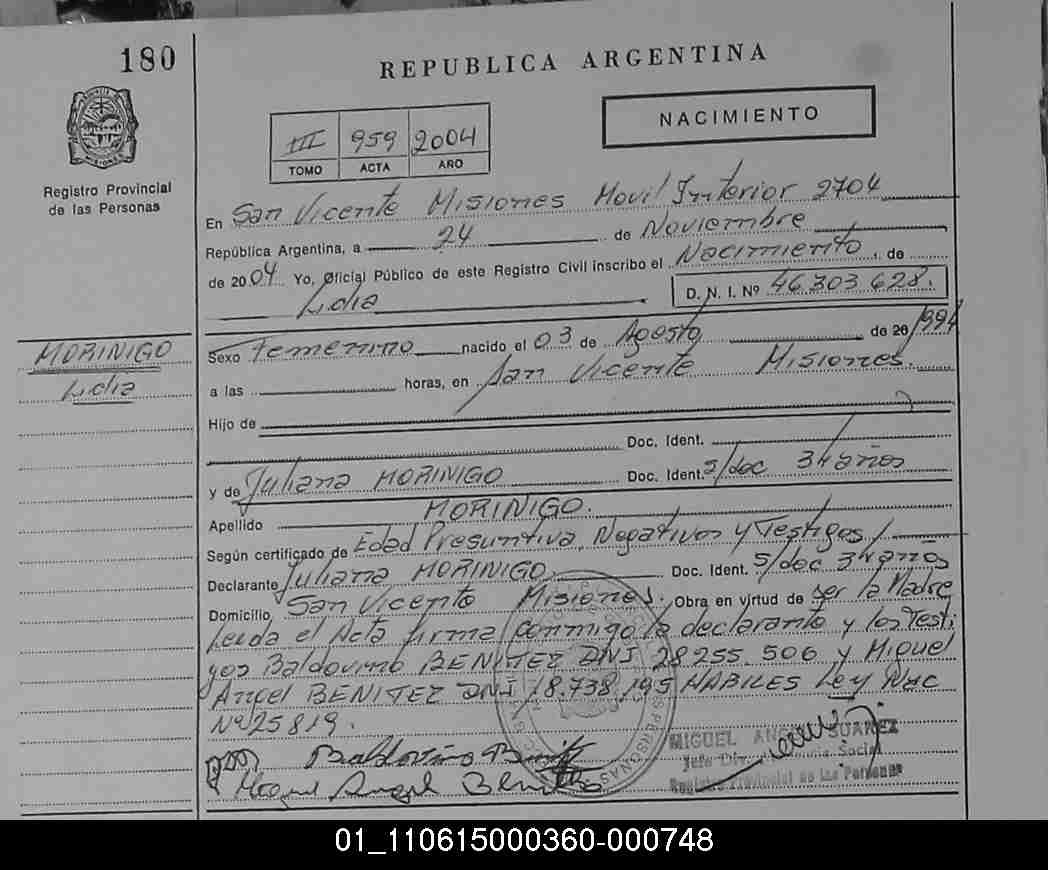 180
REPUBLICA ARGENTINA
NACIMIENTO
III 959 2004
TOMO ACTA AÑO
Registro Provincial
de las Personas
En San Vicente Misiones Movil Interior 2704
República Argentina, a 24 de Noviembre
de 2004 Yo, Oficial Público de este Registro Civil inscribo el Nacimiento, de
Lidia D. N. I. Nº 46.303.628.
MORINIGO
Lidia
Sexo Femenino nacido el 03 de Agosto de 20
a las horas, en San Vicente Misiones
Hijo de
Doc. Ident.
y de Juliana MORINIGO Doc. Ident. s/doc 34 años
Apellido MORINIGO.
Según certificado de Edad Presuntiva, Negativos y Testigos
Declarante Juliana MORINIGO Doc. Ident. s/doc 34 años
Domicilio San Vicente Misiones. Obra en virtud de ser la Madre
Leida el Acta firma conmigo la declarante y los Testi
gos Baldovino BENITEZ DNI 28255.506 y Miguel
Angel BENITEZ DNI 18.738.195 HABILES Ley Nac
Nº 25819.
MIGUEL ANGEL SUAREZ
Jefe Div. Social
Registro Provincial de las Personas
Baldovino Benitez
Miguel Angel Benitez
01_110615000360-000748